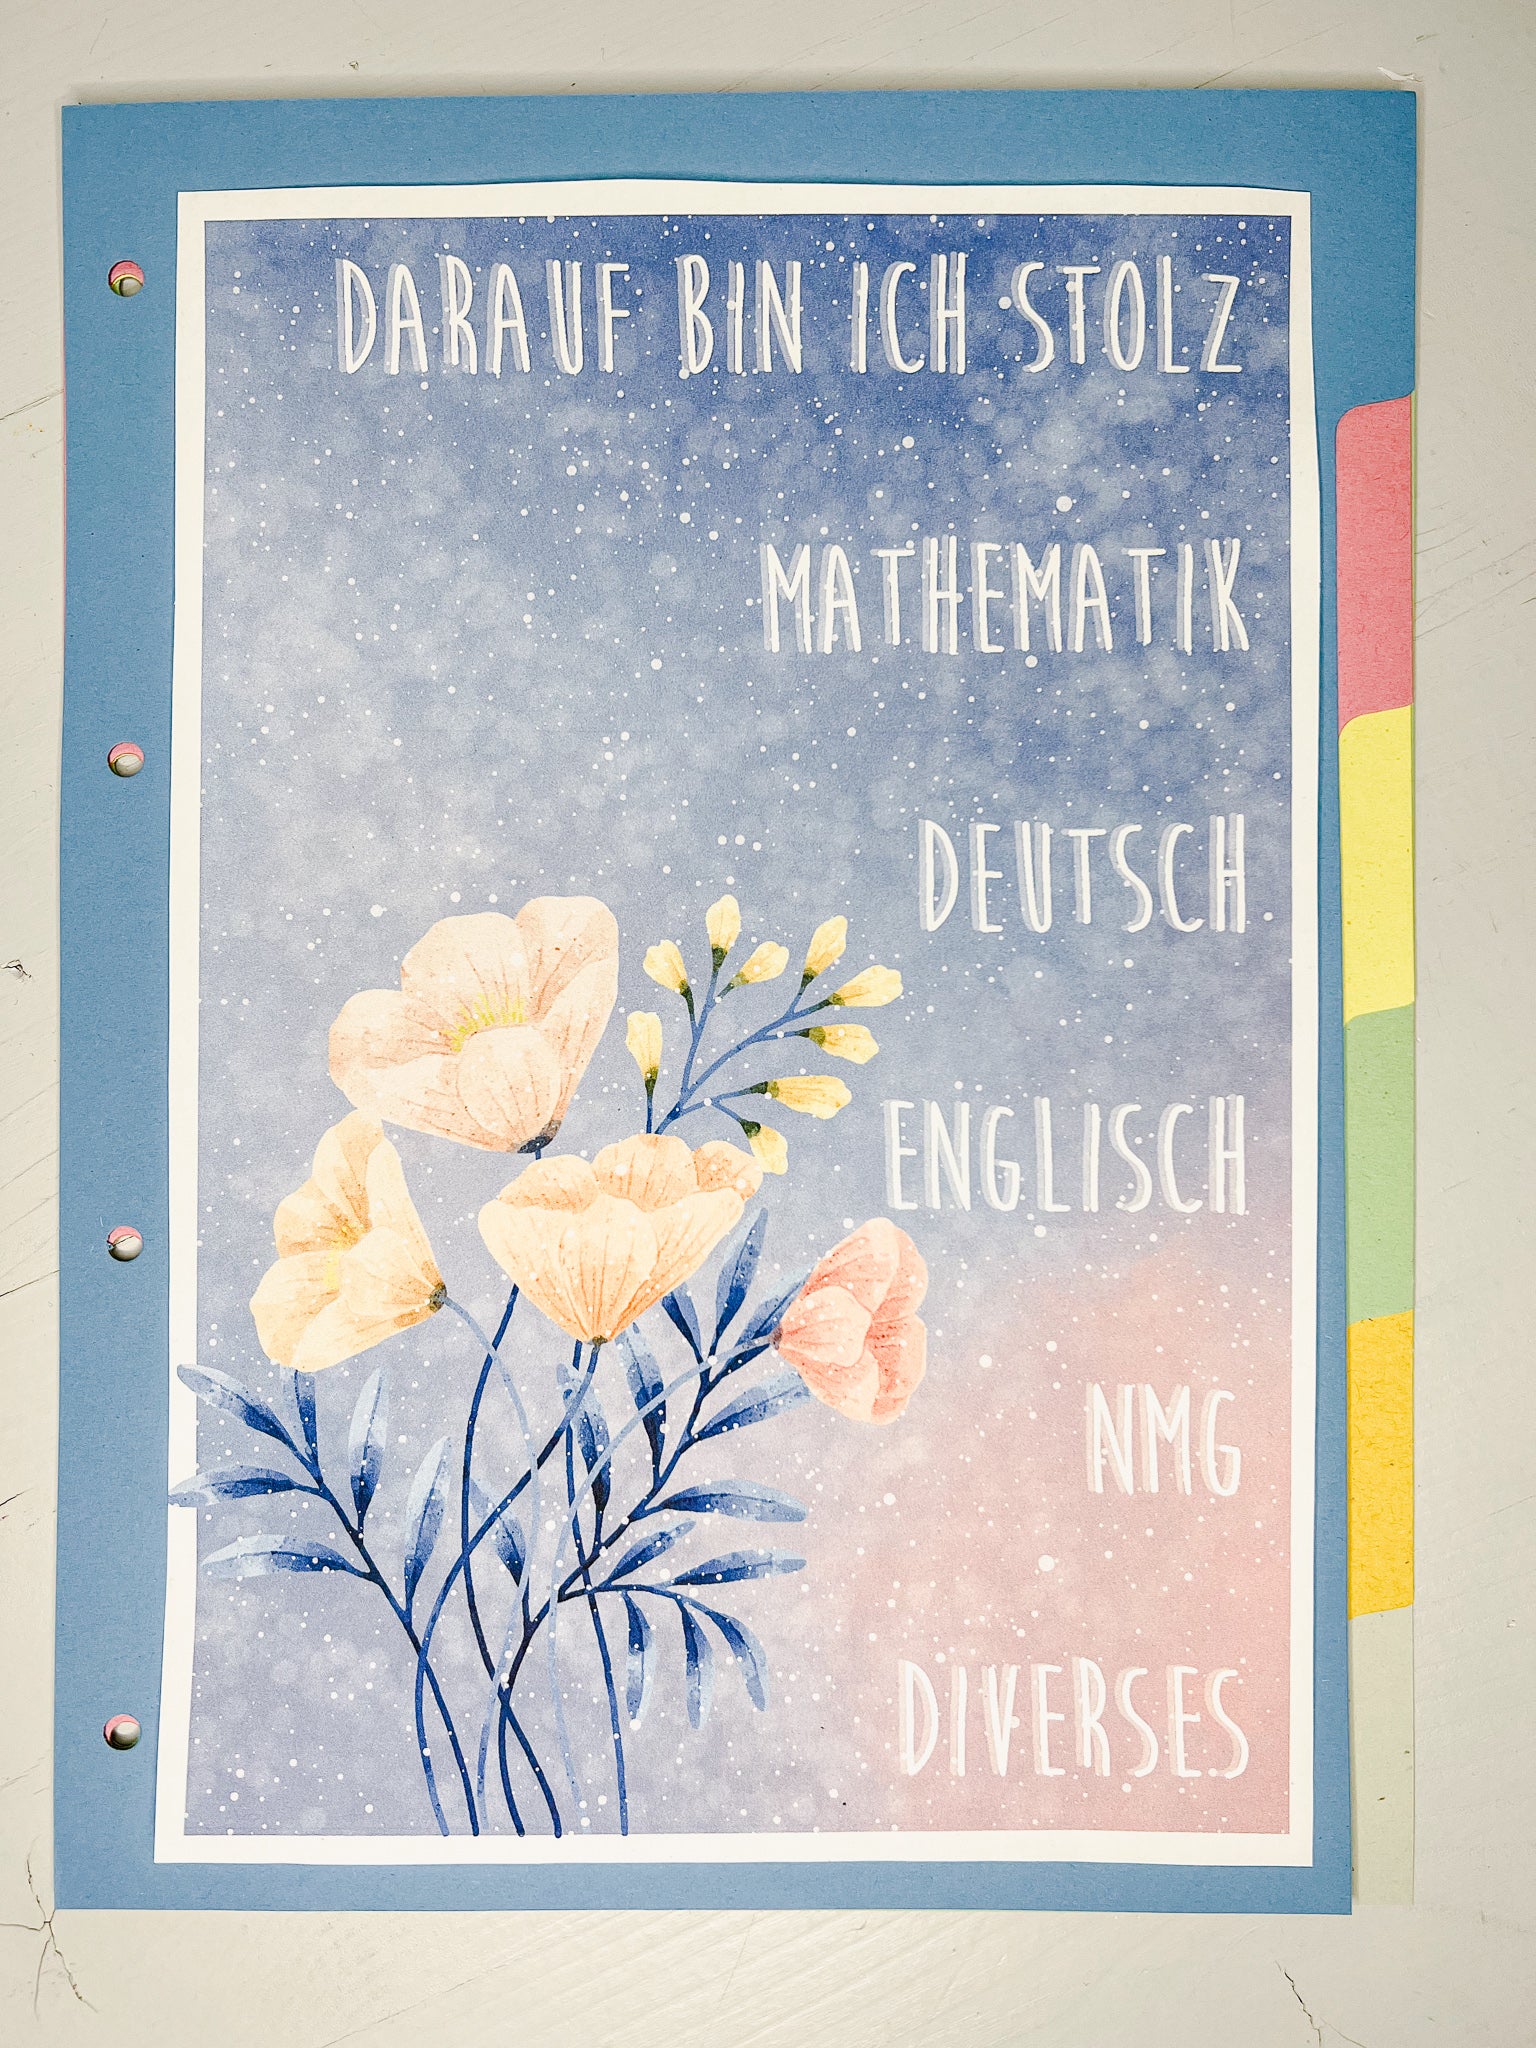 DARAUF BIN ICH STOLZ
MATHEMATIK
DEUTSCH
ENGLISCH
NMG
DIVERSES